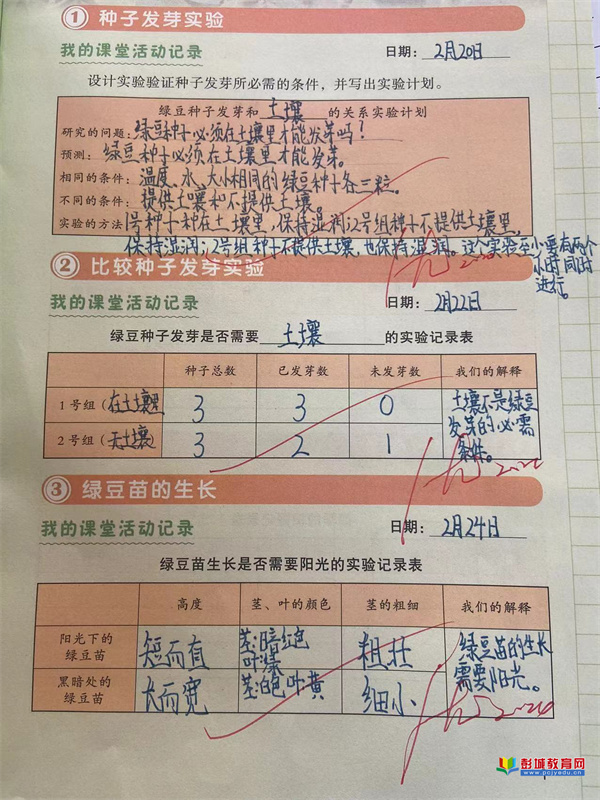 ① 种子发芽实验
我的课堂活动记录 日期: 2月20日
设计实验验证种子发芽所必需的条件，并写出实验计划。
绿豆种子发芽和 土壤 的关系实验计划
研究的问题: 绿豆种子必须在土壤里才能发芽吗?
预测: 绿豆种子必须在土壤里才能发芽。
相同的条件: 温度、水、大小相同的绿豆种子各三粒。
不同的条件: 提供土壤和不提供土壤。
实验的方法: 1号种子种在土壤里，保持湿润;2号组种子不提供土壤里，
保持湿润;2号组种子不提供土壤，也保持湿润。这个实验至少需有两个
小时同时
进行。
② 比较种子发芽实验
我的课堂活动记录 日期: 2月22日
绿豆种子发芽是否需要 土壤 的实验记录表
种子总数 已发芽数 未发芽数 我们的解释
1号组(在土壤里) 3 3 0 土壤不是绿豆发芽的必需条件。
2号组(无土壤) 3 2 1
③ 绿豆苗的生长
我的课堂活动记录 日期: 2月24日
绿豆苗生长是否需要阳光的实验记录表
高度 茎、叶的颜色 茎的粗细 我们的解释
阳光下的绿豆苗 短而直 茎:暗红色 叶:绿 粗壮 绿豆苗的生长需要阳光。
黑暗处的绿豆苗 长而宽 茎:白色 叶黄 细小
彭城教育网
www.pcjyedu.cn